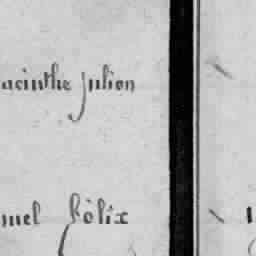 acinthe Julion
nuel Félix